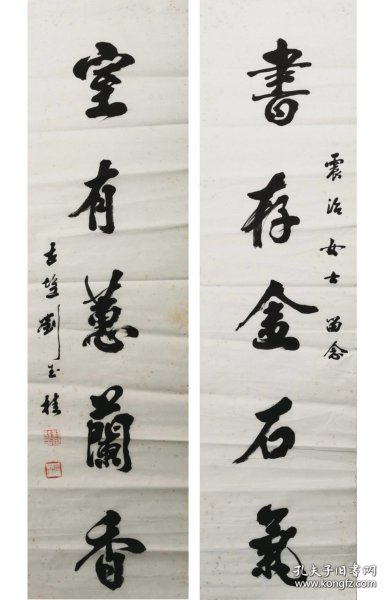 書存金石氣
震治女士留念
室有蕙蘭香
長隆劉玉桂
孔夫子旧书网
www.kongfz.com